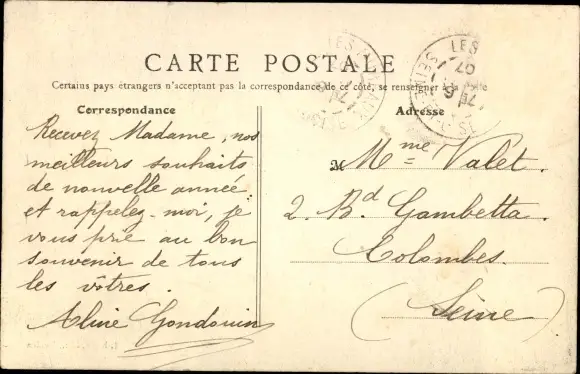 CARTE POSTALE
Certains pays étrangers n'acceptant pas la correspondance de ce côté, se renseigner à la
Correspondance
Recevez Madame, nos
meilleurs souhaits
de nouvelle année
et rappelez-moi, je
vous prie au bon
souvenir de tous
les vôtres.
Aline Gondouin
Adresse
M Mme Valet.
2. Bd Gambetta.
Colombes.
(Seine)
LES
LES